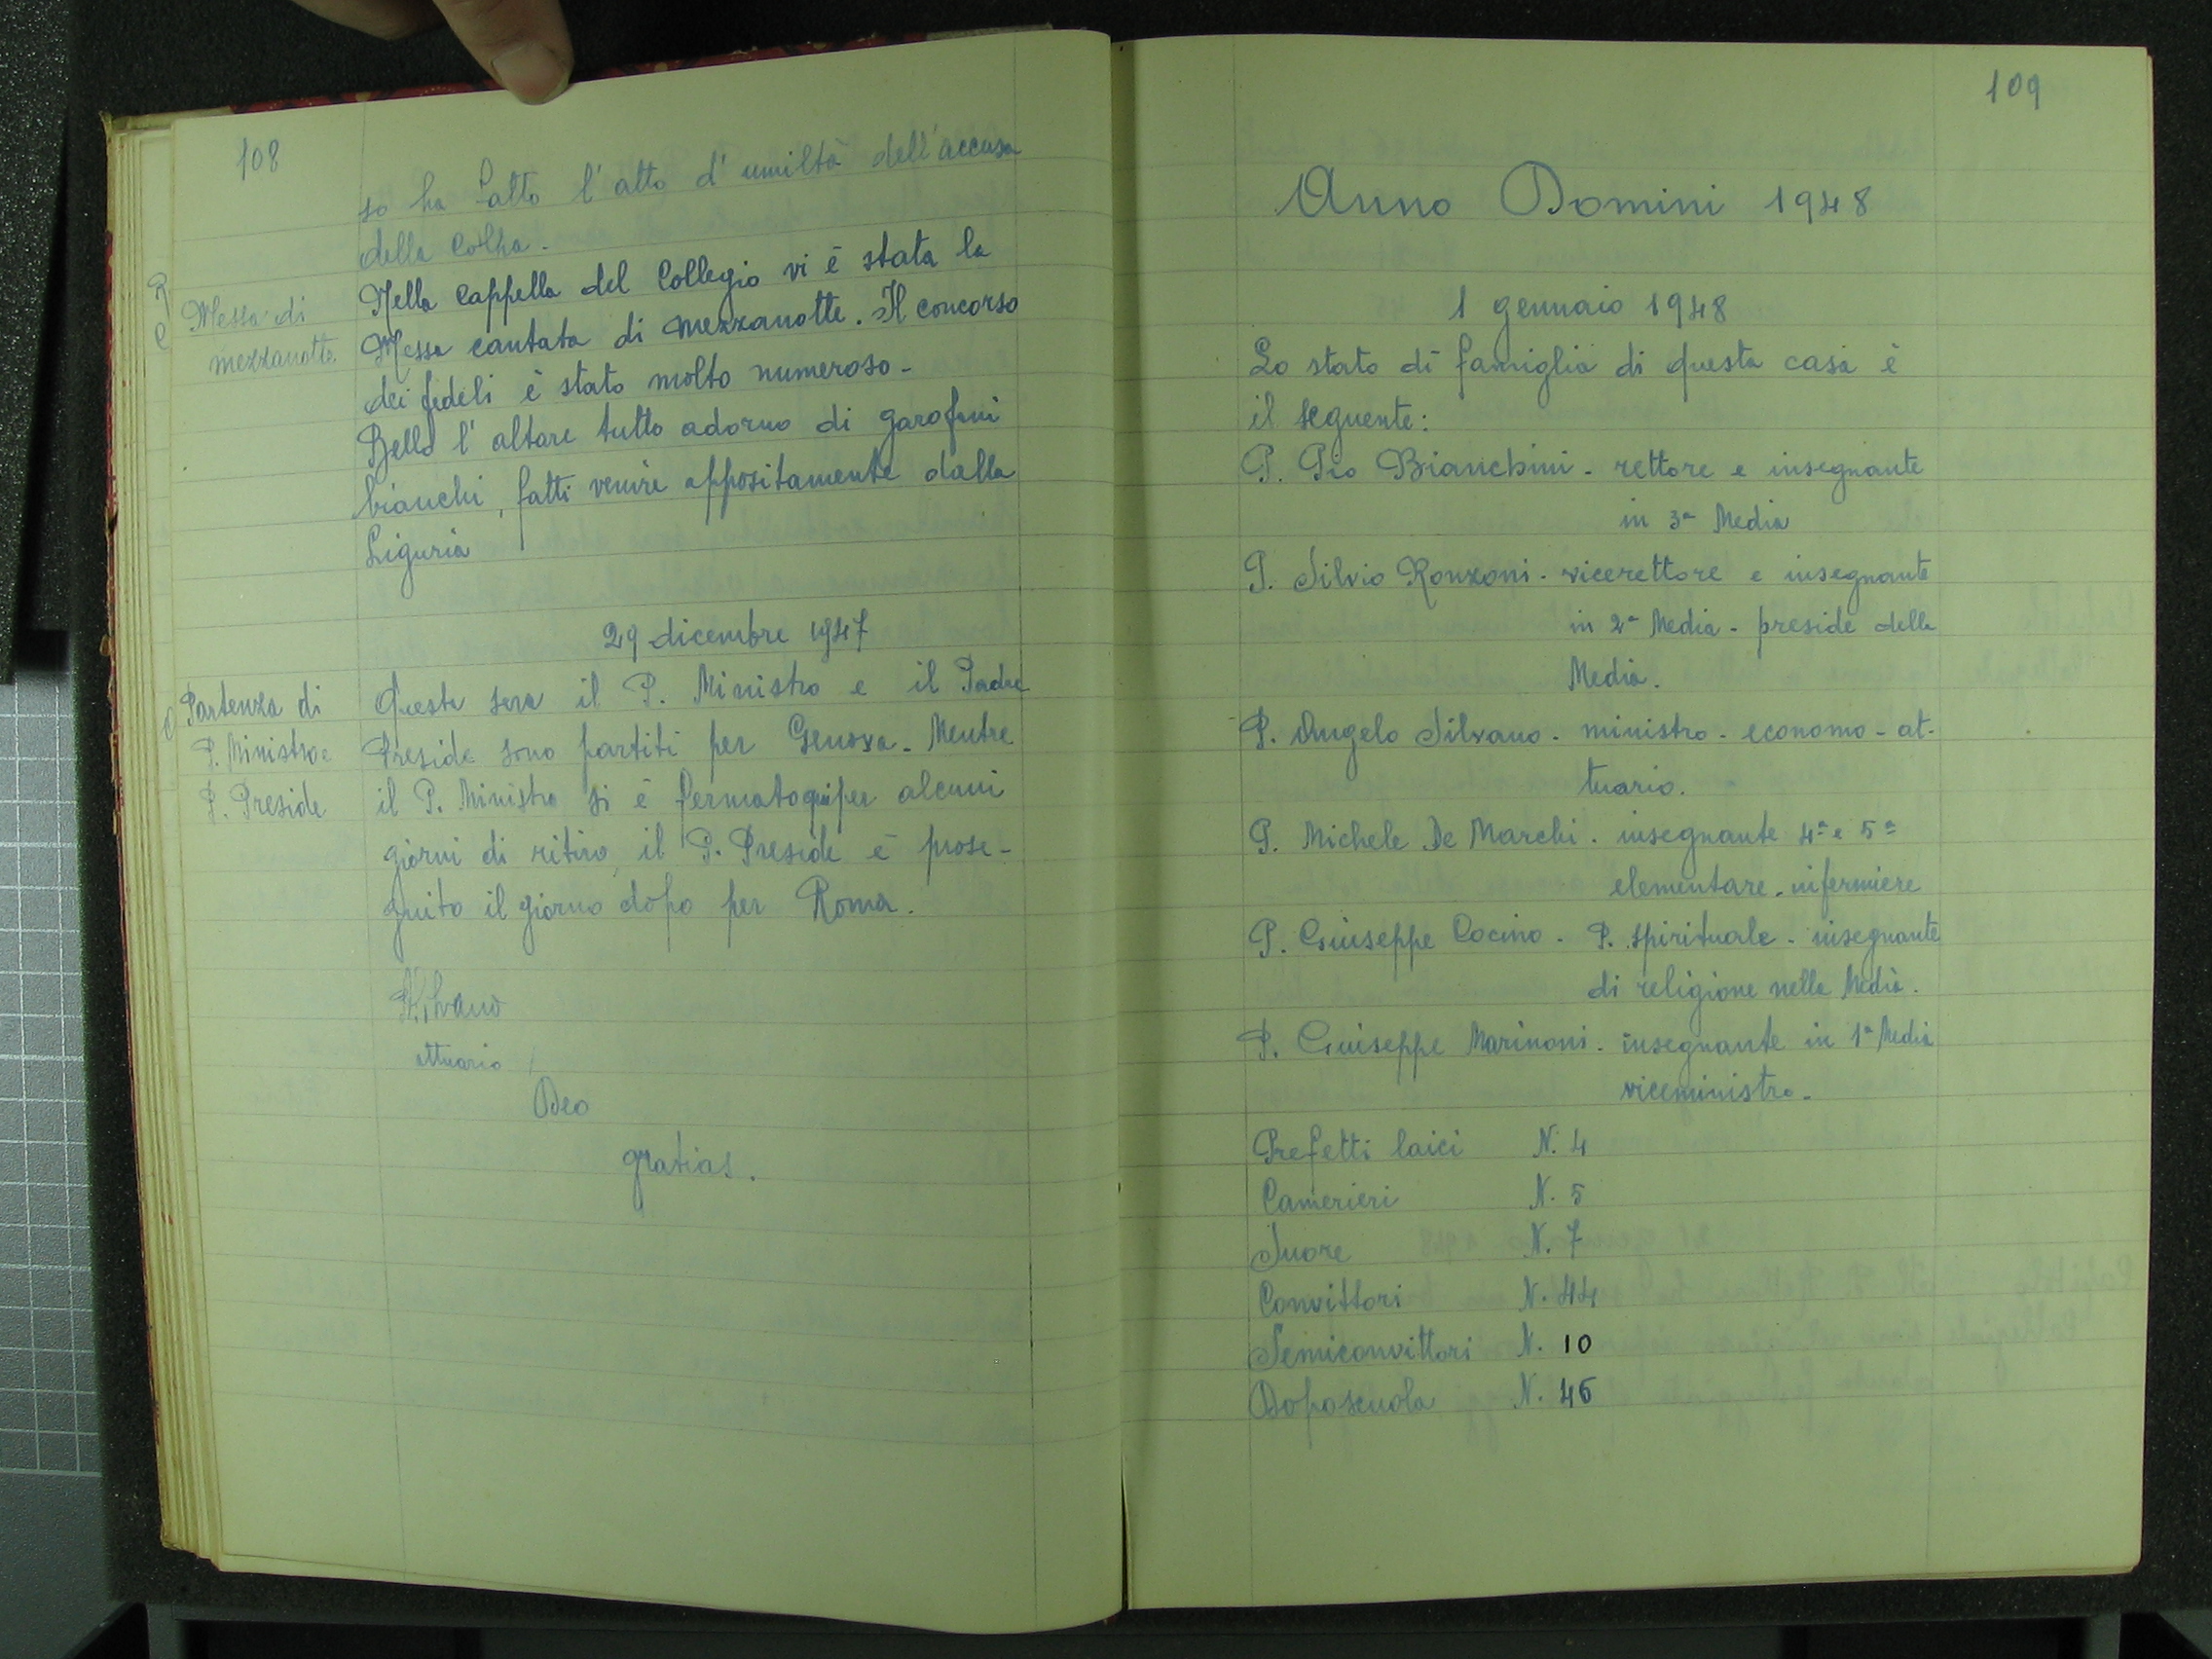 108
so ha fatto l'atto d'umiltà dell'accusa
della colpa.
Messa di
mezzanotte
Nella cappella del Collegio vi è stata la
Messa cantata di mezzanotte. Il concorso
dei fedeli è stato molto numeroso -
Bello l'altare tutto adorno di garofani
bianchi, fatti venire appositamente dalla
Liguria
29 dicembre 1947
Partenza di
P. Ministro e
P. Preside
Questa sera il P. Ministro e il Padre
Preside sono partiti per Genova. Mentre
il P. Ministro si è fermato qui per alcuni
giorni di ritiro, il P. Preside è prose-
guito il giorno dopo per Roma.
Silvano
attuario
Deo
gratias.
109
Anno Domini 1948
1 gennaio 1948
Lo stato di famiglia di questa casa è
il seguente:
P. Pio Bianchini - rettore e insegnante
in 3ª Media
P. Silvio Ronzoni - vicerettore e insegnante
in 2ª Media - preside della
Media.
P. Angelo Silvano - ministro - economo - at-
tuario.
P. Michele De Marchi - insegnante 4ª e 5ª
elementare - infermiere
P. Giuseppe Cocino - P. spirituale - insegnante
di religione nella Media.
P. Giuseppe Marinoni - insegnante in 1ª Media
viceministro -
Prefetti laici N. 4
Camerieri N. 5
Suore N. 7
Convittori N. 44
Semiconvittori N. 10
Doposcuola N. 46